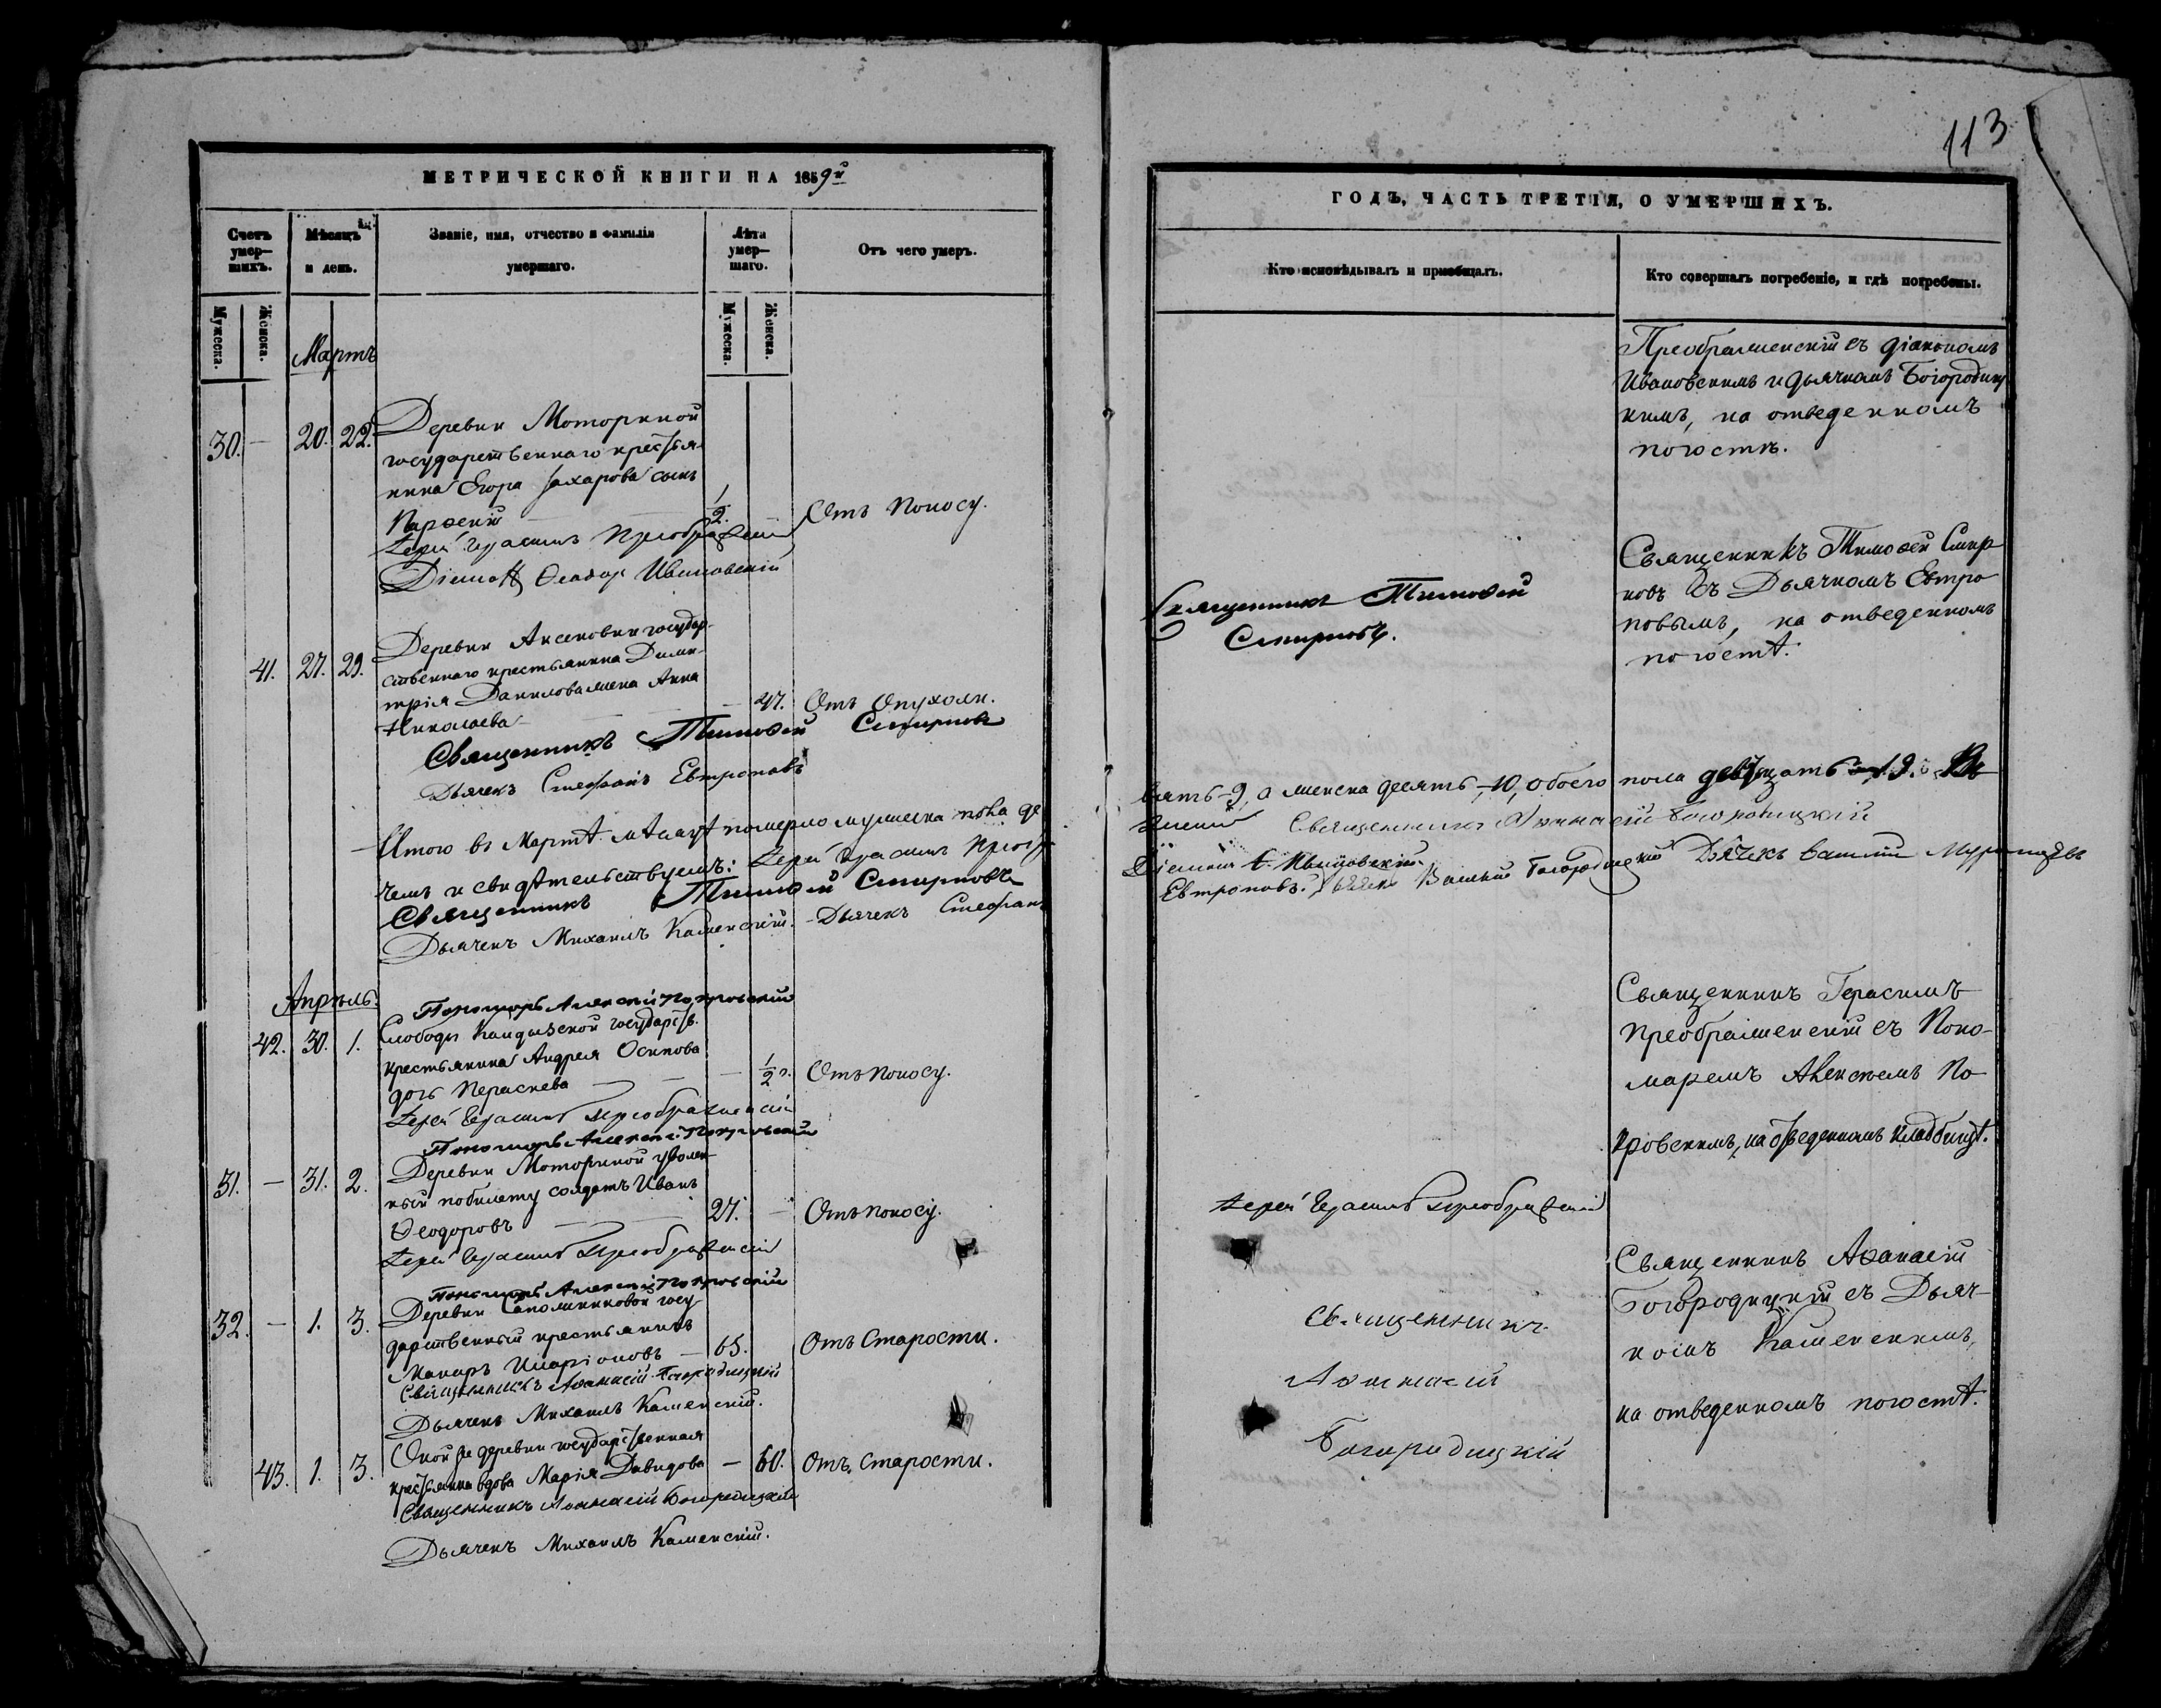 МЕТРИЧЕСКОЙ КНИГИ НА 1859й
Счетъ умер-шихъ.
Мѣсяцъ и день.
Званіе, имя, отчество и фамилія умершаго.
Лѣта умер-шаго.
Отъ чего умеръ.
Мужеска.
Женска.
Мужеска.
Женска.
Мартъ
30. — 20. 22.
Деревни Моториной
государственнаго крестья-
нина Егора Захарова сынъ
Парѳеній — 1/2. — Отъ Поносу.
Іерей Герасимъ Преображенскій
Діаконъ Ѳеодоръ Ивановскій
41. 27. 29.
Деревни Аксеновки государ-
ственнаго крестьянина Дими-
трія Данилова жена Анна
Николаева — 47. Отъ Опухоли.
Священникъ Тимоѳей Смирновъ
Дьячекъ Стефанъ Евтроповъ
Итого въ Мартѣ мѣсяцѣ померло мужеска пола де
чемъ и свидѣтельствуемъ: Іерей Герасимъ Преобр
Священникъ Тимоѳей Смирновъ
Дьячекъ Михаилъ Каменскій. Дьячекъ Стефанъ
Апрѣль.
Пономарь Алексѣй Покровскій
42. 30. 1.
Слободы государств.
крестьянина Андрея Осипова
дочь Параскева — 1/2 г. Отъ Поносу.
Іерей Герасимъ Преображенскій
Пономарь Алексѣй Покровскій
31. — 31. 2.
Деревни Моториной уволен-
ный по билету солдатъ Иванъ
Ѳеодоровъ — 27. — Отъ поносу.
Іерей Герасимъ Преображенскій
Пономарь Алексѣй Покровскій
32. — 1. 3.
Деревни Сапожниковой госу-
дарственный крестьянинъ
Макаръ Иларіоновъ — 65. Отъ Старости.
Священникъ Аѳанасій Богородицкій
Дьячекъ Михаилъ Каменскій.
43. 1. 3.
Оной же деревни государственная
крестьянка вдова Марія Давидова — 60. Отъ Старости.
Священникъ Аѳанасій Богородицкій
Дьячекъ Михаилъ Каменскій.
113
ГОДЪ, ЧАСТЬ ТРЕТІЯ, О УМЕРШИХЪ.
Кто исповѣдывалъ и пріобщалъ.
Кто совершалъ погребеніе, и гдѣ погребены.
Преображенскій съ діакономъ
Ивановскимъ и дьячкомъ Богородиц
кимъ, на отведенномъ
погостѣ.
Священникъ Тимоѳей
Смирновъ.
Священникъ Тимоѳей Смир
новъ съ Дьячкомъ Евтро
повымъ, на отведенномъ
погостѣ.
вять-9, а женска десять,-10, обоего пола девятнацать 19. Въ
Священникъ Аѳанасій Богородицкій
Діаконъ Ѳ. Ивановскій. Дьячекъ Василій
Евтроповъ. Дьячекъ Василій Богородицкій
Священникъ Герасимъ
Преображенскій съ Поно-
маремъ Алексѣемъ По-
кровскимъ, на отведенномъ кладбищѣ.
Іерей Герасимъ Преображенскій
Священникъ
Аѳанасій
Богородицкій
Священникъ Аѳанасій
Богородицкій съ Дьяч-
комъ Каменскимъ,
на отведенномъ погостѣ.